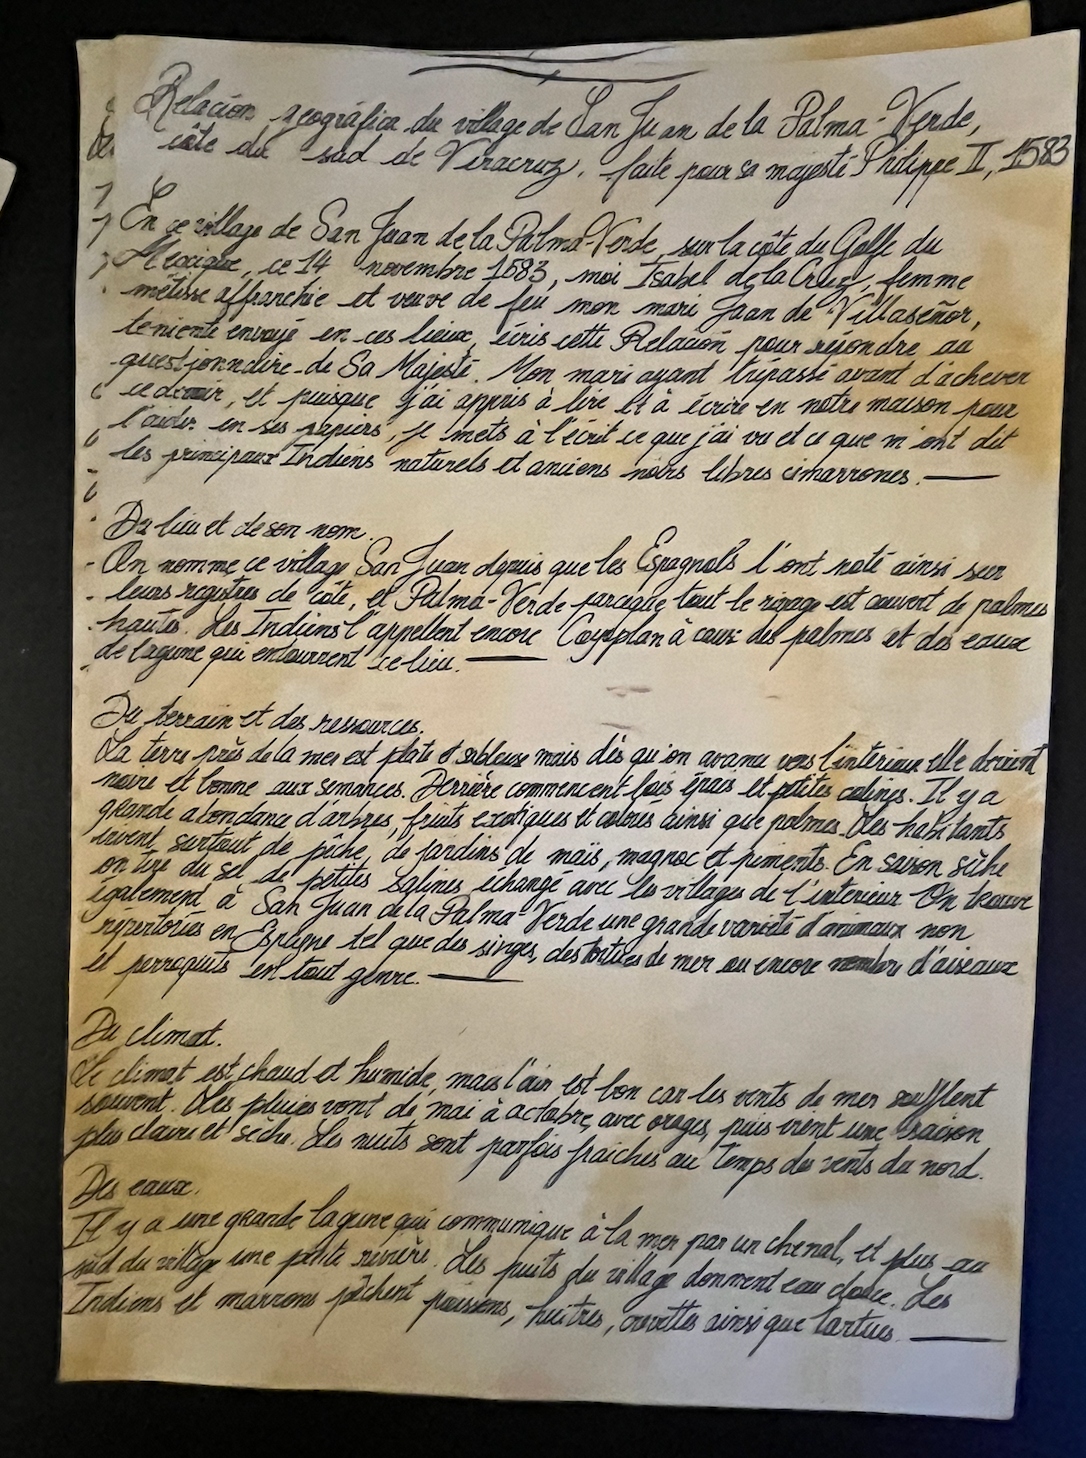 Relación geográfica du village de San Juan de la Palma-Verde,
côte du sud de Veracruz, faite pour sa majesté Philippe II, 1583
En ce village de San Juan de la Palma-Verde, sur la côte du Golfe du
Mexique, ce 14 novembre 1583, moi Isabel de la Cruz, femme
métisse affranchie et veuve de feu mon mari Juan de Villaseñor,
teniente envoyé en ces lieux, écris cette Relación pour répondre au
questionnaire de Sa Majesté. Mon mari ayant trépassé avant d'achever
ce devoir, et puisque j'ai appris à lire et à écrire en notre maison pour
l'aider en ses papiers, je mets à l'écrit ce que j'ai vu et ce que m'ont dit
les principaux Indiens naturels et anciens noirs libres cimarrones.
Du lieu et de son nom.
On nomme ce village San Juan depuis que les Espagnols l'ont noté ainsi sur
leurs registres de côte, et Palma-Verde parceque tout le rivage est couvert de palmes
hautes. Les Indiens l'appellent encore à cause des palmes et des eaux
de lagune qui entourrent ce lieu.
Du terrain et des ressources.
La terre près de la mer est plate et sableuse mais dès qu'on avance vers l'intérieur elle devient
noire et bonne aux semances. Derrière commencent bois épais et petites colines. Il y a
grande abondance d'arbres, fruits exotiques et colorés ainsi que palmes. Les habitants
vivent surtout de pêche, de jardins de maïs, magnoc et piments. En saison sèche
on tire du sel de petites salines échangé avec les villages de l'intérieur. On trouve
également à San Juan de la Palma-Verde une grande variété d'animaux non
répertoriés en Espagne tel que des singes, des tortues de mer ou encore nombre d'oiseaux
et perroquets en tout genre.
Du climat.
Le climat est chaud et humide, mais l'air est bon car les vents de mer soufflent
souvent. Les pluies vont de mai à octobre, avec orages, puis vient une saison
plus claire et sèche. Les nuits sont parfois fraîches au temps des vents du nord.
Des eaux.
Il y a une grande lagune qui communique à la mer par un chenal, et plus au
sud du village une petite rivière. Les puits du village donnent eau douce. Les
Indiens et marrons pêchent poissons, huîtres, crevettes ainsi que tortues.